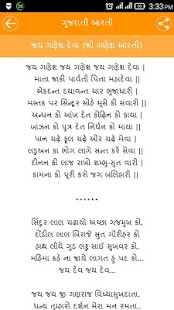 3:33 PM
ગુજરાતી આરતી
જય ગણેશ દેવા (શ્રી ગણેશ આરતી)
જય ગણેશ જય ગણેશ જય ગણેશ દેવા |
માતા જાકી પાર્વતી પિતા મહાદેવા |
એકદન્ત દયાવન્ત ચાર ભુજાધારી |
મસ્તક પર સિન્દૂર સોહે મૂસે કી સવારી ||
અન્ધન કો આંખ દેત કોઢિન કો કાયા |
બાંઝન કો પુત્ર દેત નિર્ધન કો માયા ||
પાન ચઢ઼ે ફૂલ ચઢ઼ે ઔર ચઢ઼ે મેવા |
લડ્ડુઅન કા ભોગ લાગે સન્ત કરેં સેવા ||
દીનન કી લાજ રાખો શમ્ભુ-સુત વારી |
કામના કો પૂરી કરો જગ બલિહારી ||
......
સિંદુર લાલ ચઢાયો અચ્છા ગજમુખ કો,
દોંદીલ લાલ બિરાજે સુત ગૌરીહર કો
હાથ લીએ ગુડ લડ્ડુ સાંઈ સુખવર કો,
મહિમા કહે ના જાયે લાગત હું પદ કો...
જય દેવ જય દેવ...
જય જય જી ગણરાજ વિધ્યાસુખદાતા,
ધન્ય તુમ્હારો દર્શન મેરા મન રમતા...